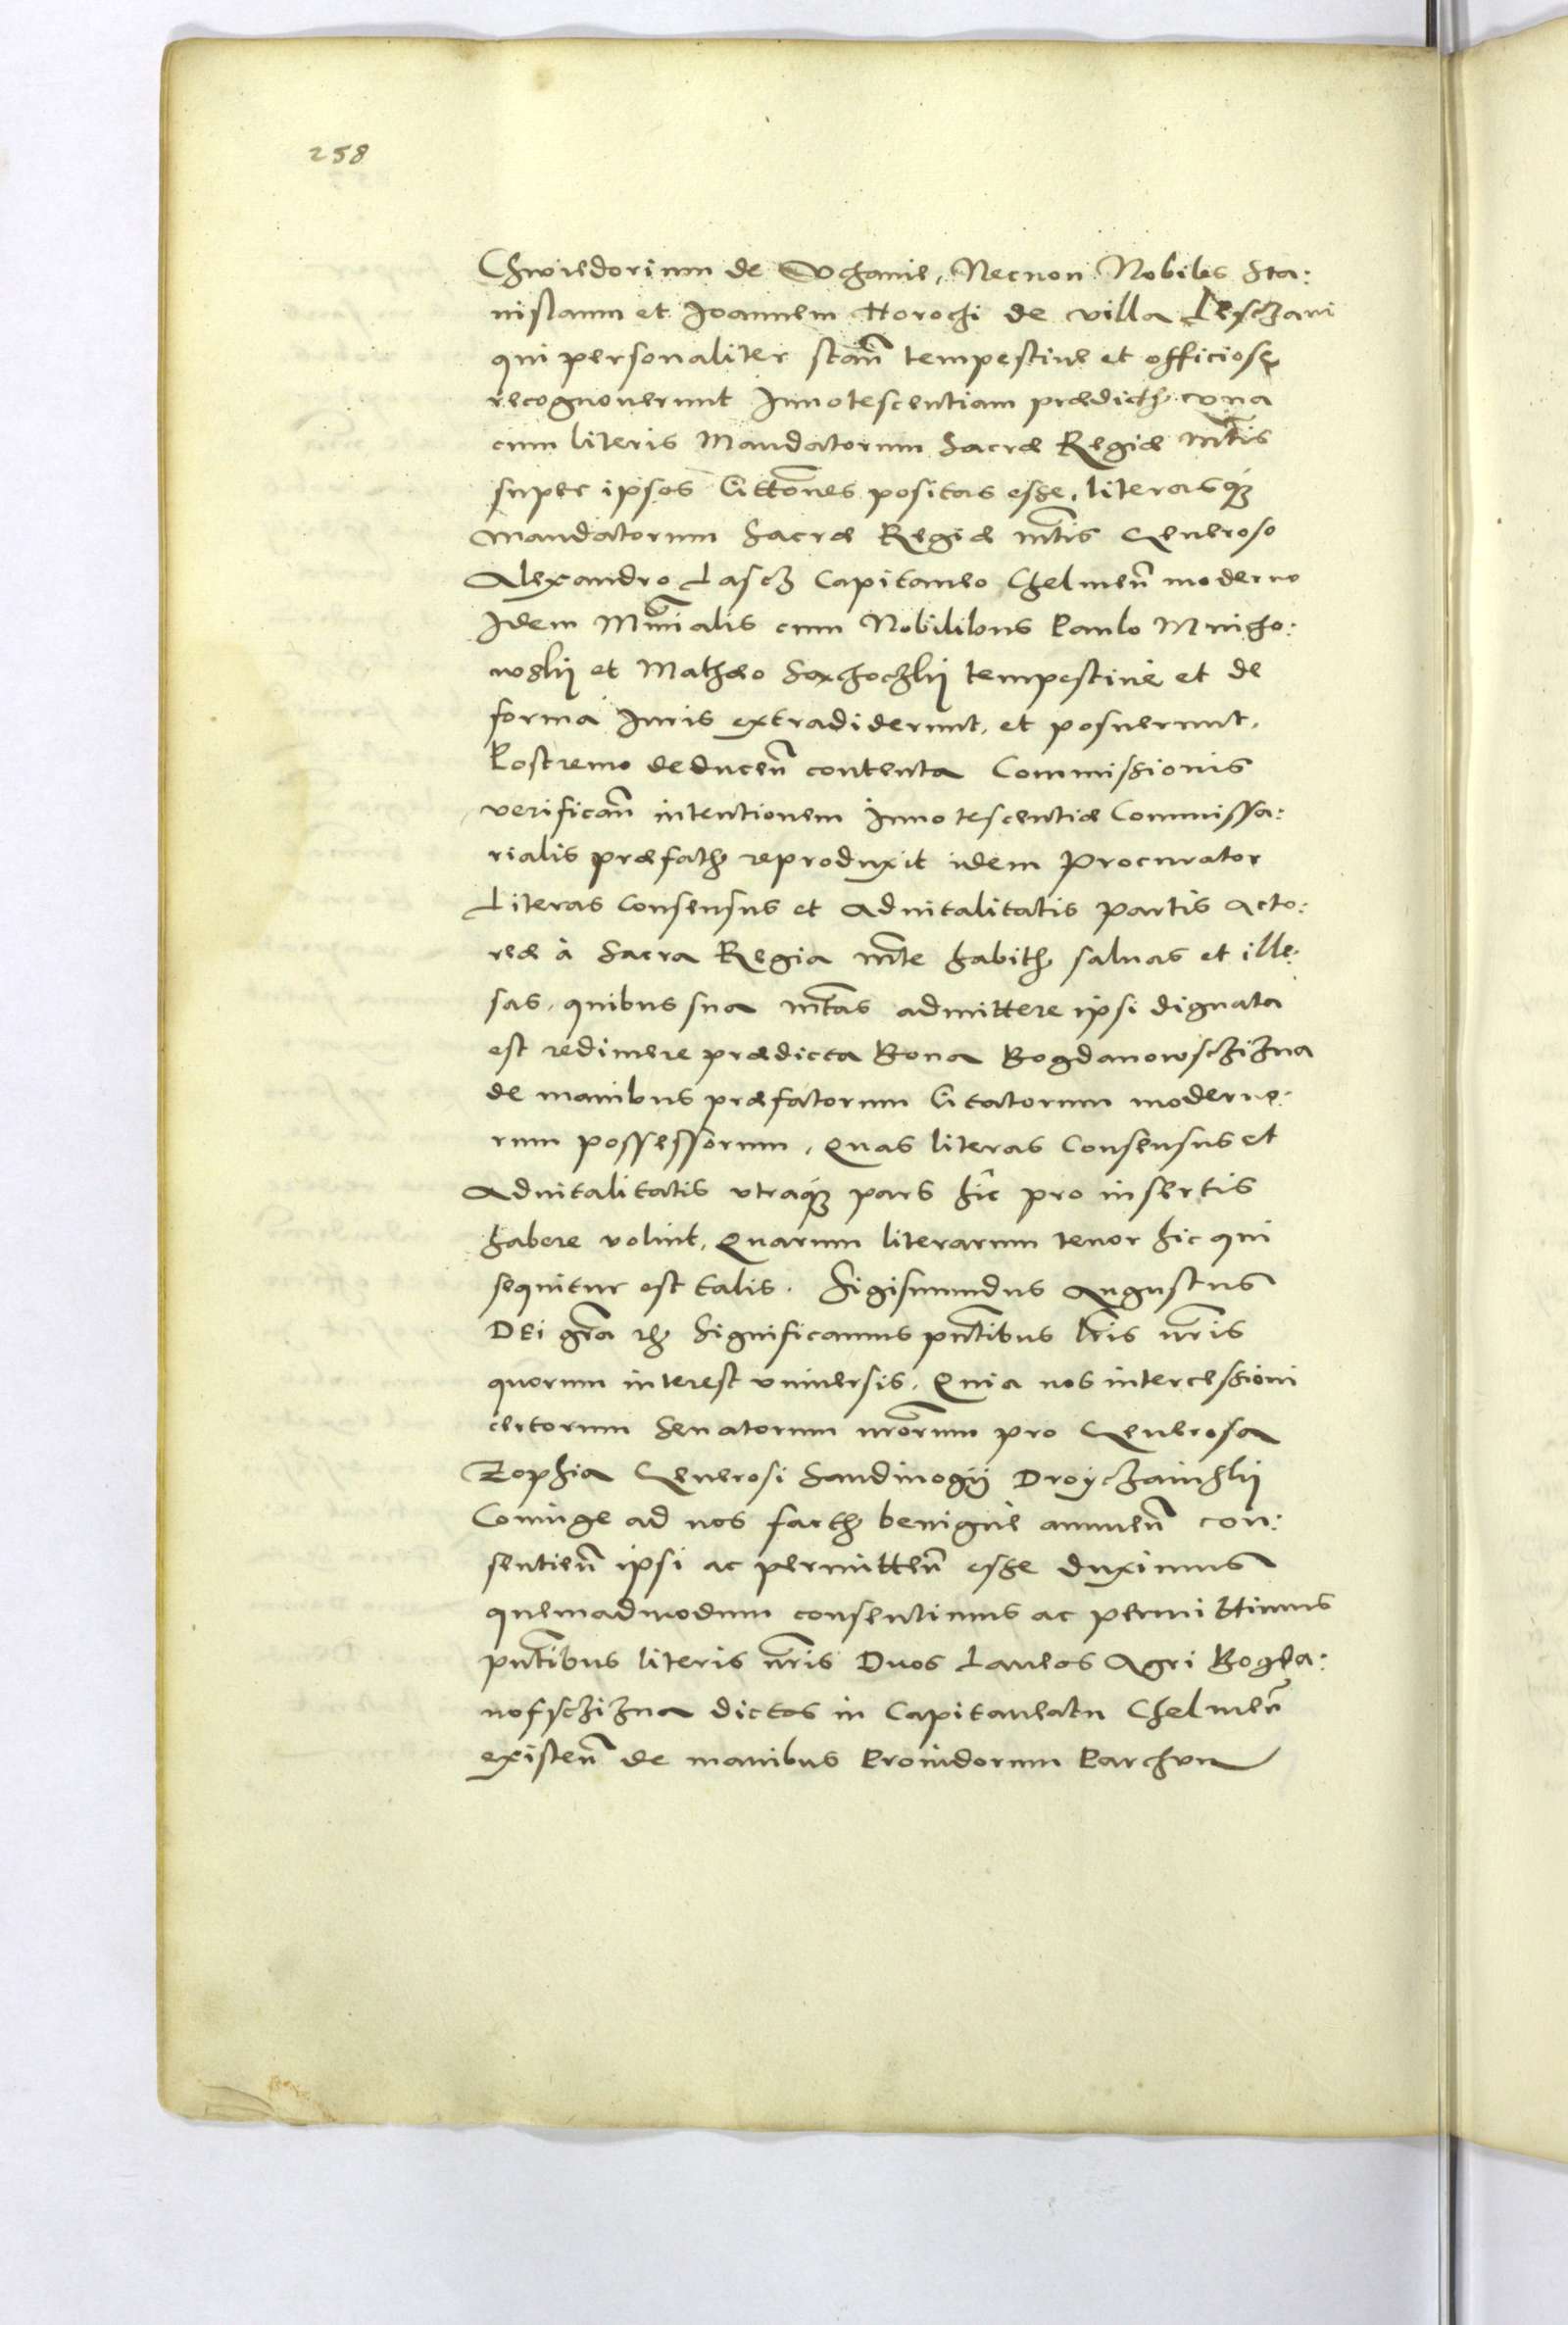 258
Chwiedorium de Uchanie, Necnon Nobiles Sta:
nislaum et Joannem Horochi de villa Lesczani
qui personaliter stañ tempestiue et officiose
recognouerunt Innotescentiam prædicth. vna
cum literis Mandatorum Sacræ Regiæ Mttis
super ipsos Cittõnes positas esse, literasq3
mandatorum Sacræ Regiæ Mttis Generoso
Alexandro Lascz Capitaneo Chelmeñ moderno
Idem Mĩnialis cum Nobilibus Paulo Mnicho:
wskij et Mathæo Soxchoczkij tempestiuè et de
forma Iuris extradiderunt, et posuerunt.
Postremo deduceñ contenta Commissionis
verificañ intentionem Innotescentiæ Commissa:
rialis præfath. reproduxit idem Procurator
Literas Consensus et aduitalitatis partis Acto:
reæ à Sacra Regia Mtte habith. saluas et ille:
sas, quibus sua Mttas admittere ipsi dignata
est redimere prædicta Bona Bogdanowsczizna
de manibus præfatorum Citatorum moderno:
rum possessorum, Quas literas Consensus et
Aduitalitatis vtraq3 pars hîc pro insertis
habere voluit, Quarum literarum tenor hic qui
sequitur est talis. Sigismundus Augustus
Dei gr̃a rẽ. Significamus pñtibus lr̃is nr̃is
quorum interest vniuersis. Quia nos intercessioni
certorum Senatorum nrõrum pro Generosa
Zophia Generosi Sandiuogij Droyczainskij
Coniuge ad nos facth. benignè annueñ con:
sentieñ ipsi ac permitteñ esse duximus
quemadmodum consentimus ac permittimus
pñtibus literis nr̃is Duos Laneos Agri Bogda:
nofsczizna dictos in Capitaneatu Chelmeñ
existeñ de manibus Prouidorum Parchon